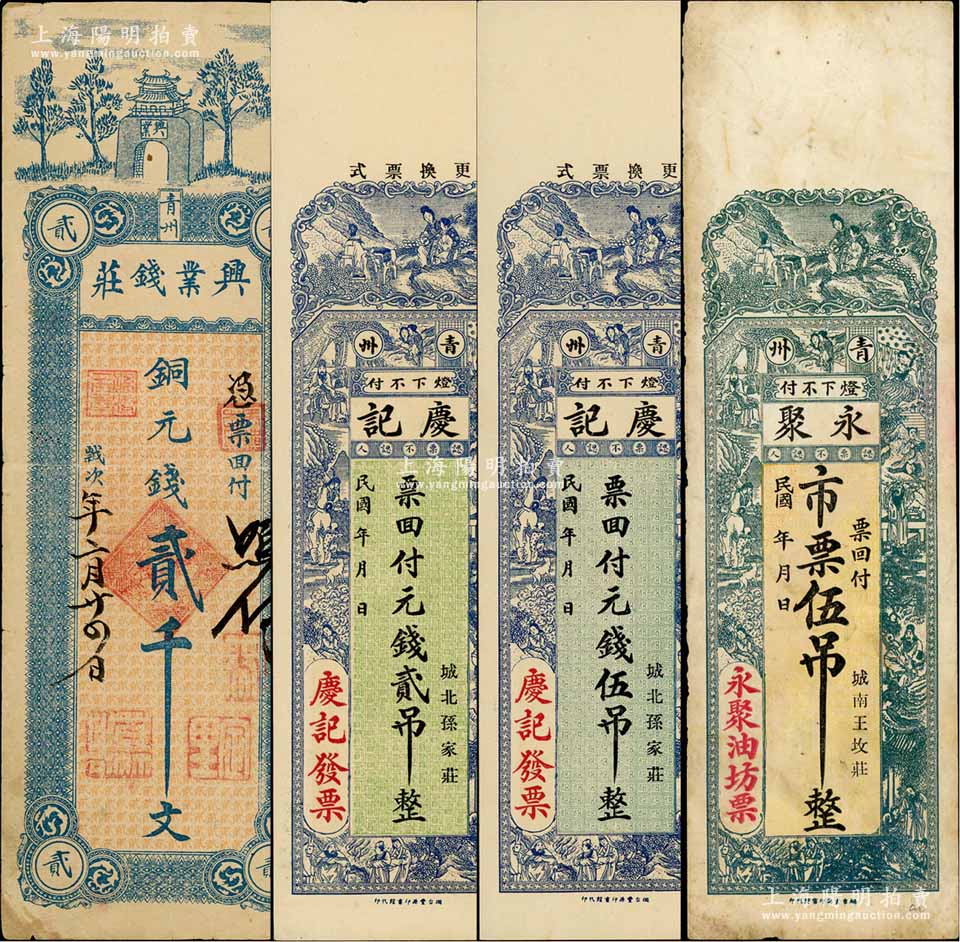 上海陽明拍賣
www.yangmingauction.com
興業
青州
貳
興業錢莊
憑票回付
銅元錢貳千文
年二月廿四日
貳
貳
更換票式
青州
燈下不付
慶記
認票不認人
城北孫家莊
票回付元錢貳吊整
民國 年 月 日
慶記發票
更換票式
青州
燈下不付
慶記
認票不認人
城北孫家莊
票回付元錢伍吊整
民國 年 月 日
慶記發票
上海陽明拍賣
www.yangmingauction.com
青州
燈下不付
永聚
認票不認人
票回付
城南王坟莊
市票伍吊整
民國 年 月 日
永聚油坊票
上海陽明拍賣
www.yangmingauction.com